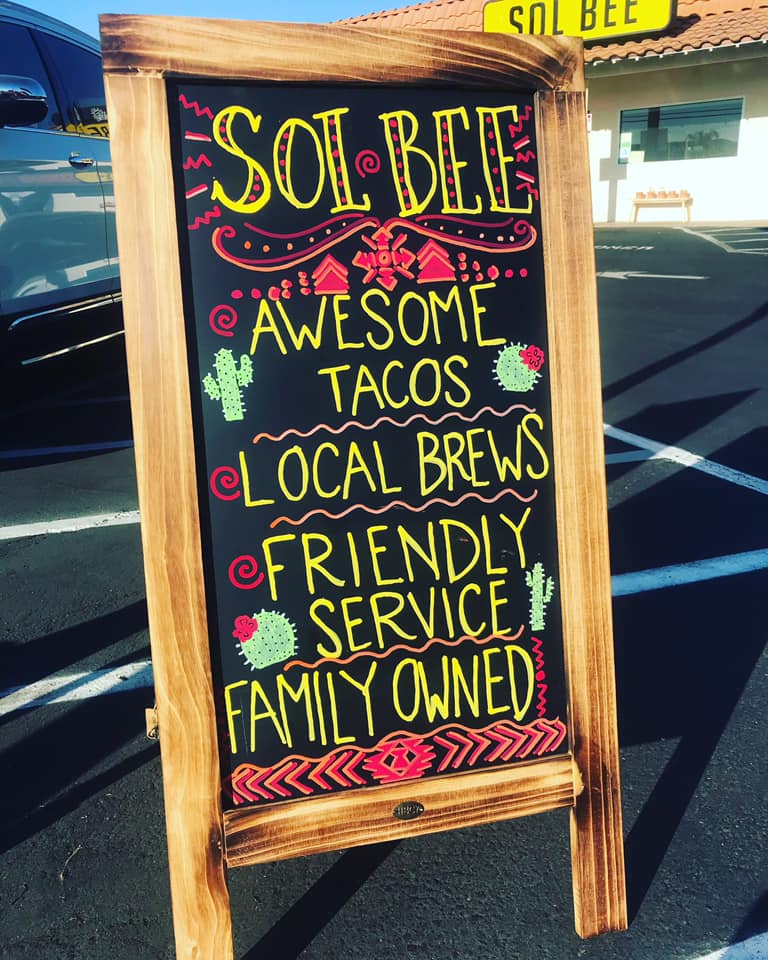 SOL BEE
SOL BEE
AWESOME
TACOS
LOCAL BREWS
FRIENDLY
SERVICE
FAMILY OWNED